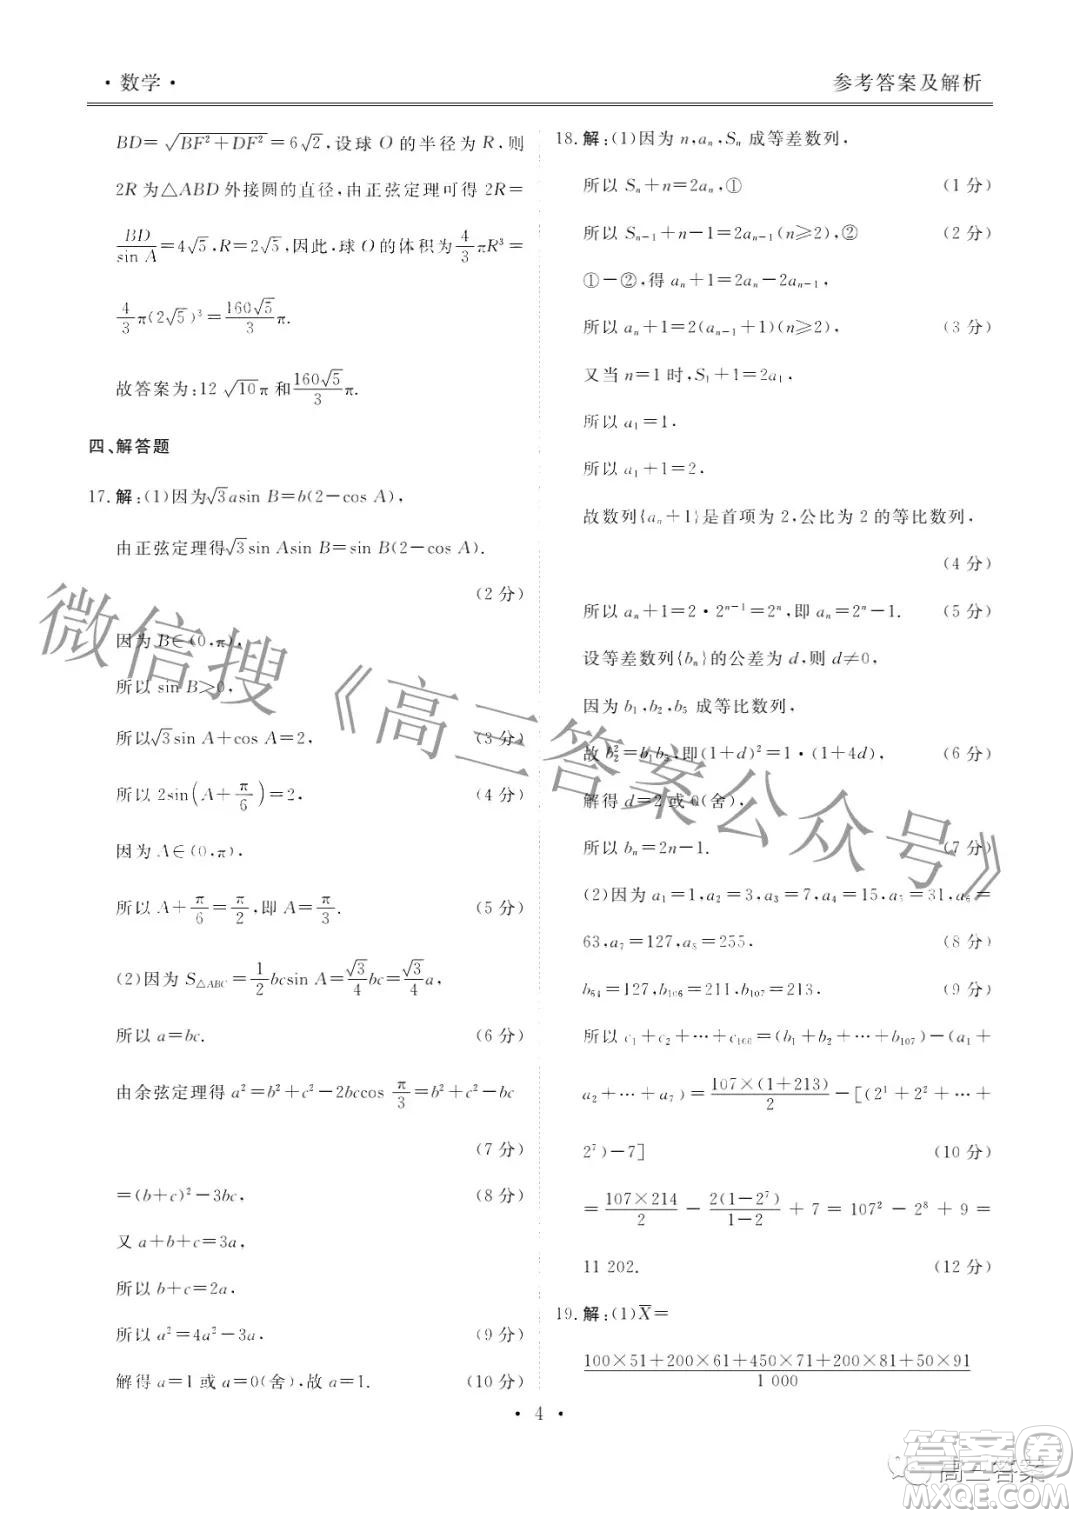 · 数学 ·
参考答案及解析
BD=√(BF²+DF²)=6√2,设球 O 的半径为 R,则
2R 为△ABD 外接圆的直径,由正弦定理可得 2R=
BD/sin A=4√5,R=2√5,因此,球 O 的体积为4/3πR³=
4/3π(2√5)³=160√5/3π.
故答案为:12√10π 和160√5/3π.
四、解答题
17.解:(1)因为√3asin B=b(2-cos A),
由正弦定理得√3sin Asin B=sin B(2-cos A).
(2 分)
因为 B∈(0,π),
所以 sin B>0,
所以√3sin A+cos A=2, (3 分)
所以 2sin(A+π/6)=2. (4 分)
因为 A∈(0,π),
所以 A+π/6=π/2,即 A=π/3. (5 分)
(2)因为 S△ABC=1/2bcsin A=√3/4bc=√3/4a,
所以 a=bc. (6 分)
由余弦定理得 a²=b²+c²-2bccos π/3=b²+c²-bc
(7 分)
=(b+c)²-3bc, (8 分)
又 a+b+c=3a,
所以 b+c=2a,
所以 a²=4a²-3a. (9 分)
解得 a=1 或 a=0(舍),故 a=1. (10 分)
18.解:(1)因为 n,aₙ,Sₙ 成等差数列,
所以 Sₙ+n=2aₙ,① (1 分)
所以 Sₙ₋₁+n-1=2aₙ₋₁(n≥2),② (2 分)
①-②,得 aₙ+1=2aₙ-2aₙ₋₁,
所以 aₙ+1=2(aₙ₋₁+1)(n≥2), (3 分)
又当 n=1 时,S₁+1=2a₁,
所以 a₁=1.
所以 a₁+1=2.
故数列{aₙ+1}是首项为 2,公比为 2 的等比数列,
(4 分)
所以 aₙ+1=2·2ⁿ⁻¹=2ⁿ,即 aₙ=2ⁿ-1. (5 分)
设等差数列{bₙ}的公差为 d,则 d≠0,
因为 b₁,b₂,b₅ 成等比数列,
故 b₂²=b₁b₅,即(1+d)²=1·(1+4d), (6 分)
解得 d=2 或 0(舍),
所以 bₙ=2n-1. (7 分)
(2)因为 a₁=1,a₂=3,a₃=7,a₄=15,a₅=31,a₆=
63,a₇=127,a₈=255. (8 分)
b₆₄=127,b₁₀₆=211,b₁₀₇=213. (9 分)
所以 c₁+c₂+···+c₁₀₀=(b₁+b₂+···+b₁₀₇)-(a₁+
a₂+···+a₇)=107×(1+213)/2-[(2¹+2²+···+
2⁷)-7] (10 分)
=107×214/2-2(1-2⁷)/1-2+7=107²-2⁸+9=
11 202. (12 分)
19.解:(1)X̄=
100×51+200×61+450×71+200×81+50×91/1 000
· 4 ·
微信搜《高三答案公众号》
高三答案
答案圈
MXQE.COM